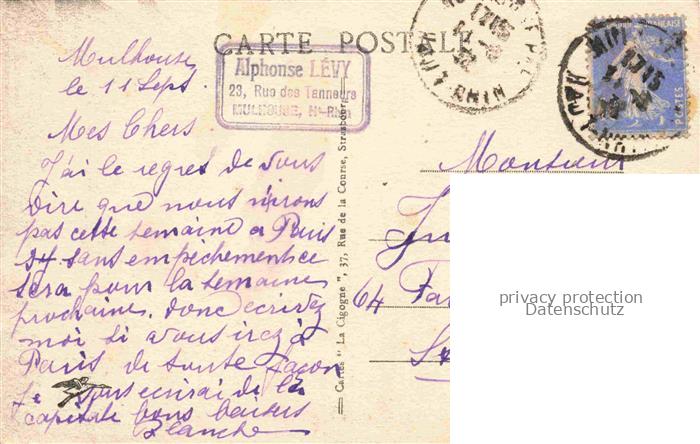 CARTE POSTALE
Alphonse LÉVY
23, Rue des Tanneurs
MULHOUSE, Ht-Rhin
Mulhouse
le 11 Sept.
Mes Chers
J'ai le regres de vous
dire que nous n'irons
pas cette semaine a Paris
sans empêchement ce
sera pour la semaine
prochaine. donc ecrivez
moi si vous irez à
Paris de toute façon
Je vous ecrirai de la
capitale bons baisers
Blanche
Cartes "La Cigogne", 37, Rue de la Course, Strasbourg
Monsieur
64
privacy protection
Datenschutz
HAUT-RHIN
17 15
POSTES